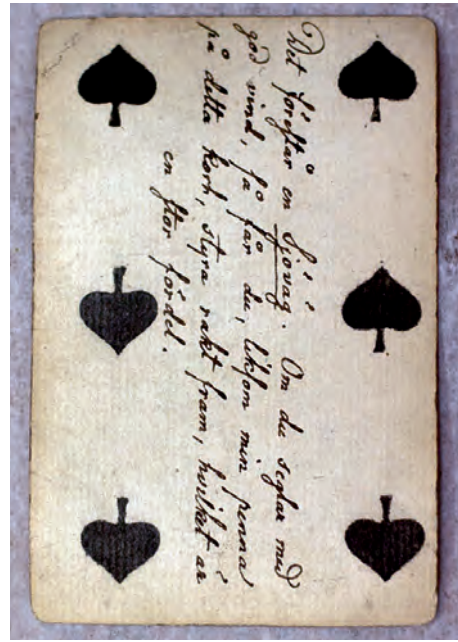 Det förestår en Sjövåg. Om du seglar med
god vind, så får du, liksom min penna
på detta kort, styra rakt fram, hvilket är
en stor fördel.